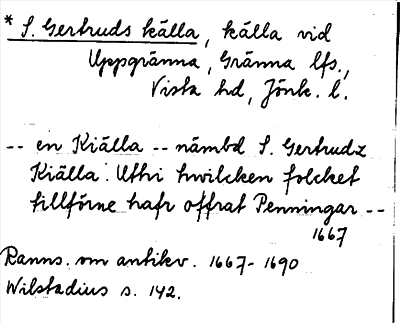 * S. Gertruds källa, källa vid
Uppgränna, Gränna lfs.,
Vista hd, Jönk. l.
-- en Kiälla -- nämbd S. Gertrudz
Kiälla: Uthi hwilcken folcket
tillförne hafr offrat Penningar --
1667
Ranns. om antikv. 1667-1690
Wilstadius s. 142.